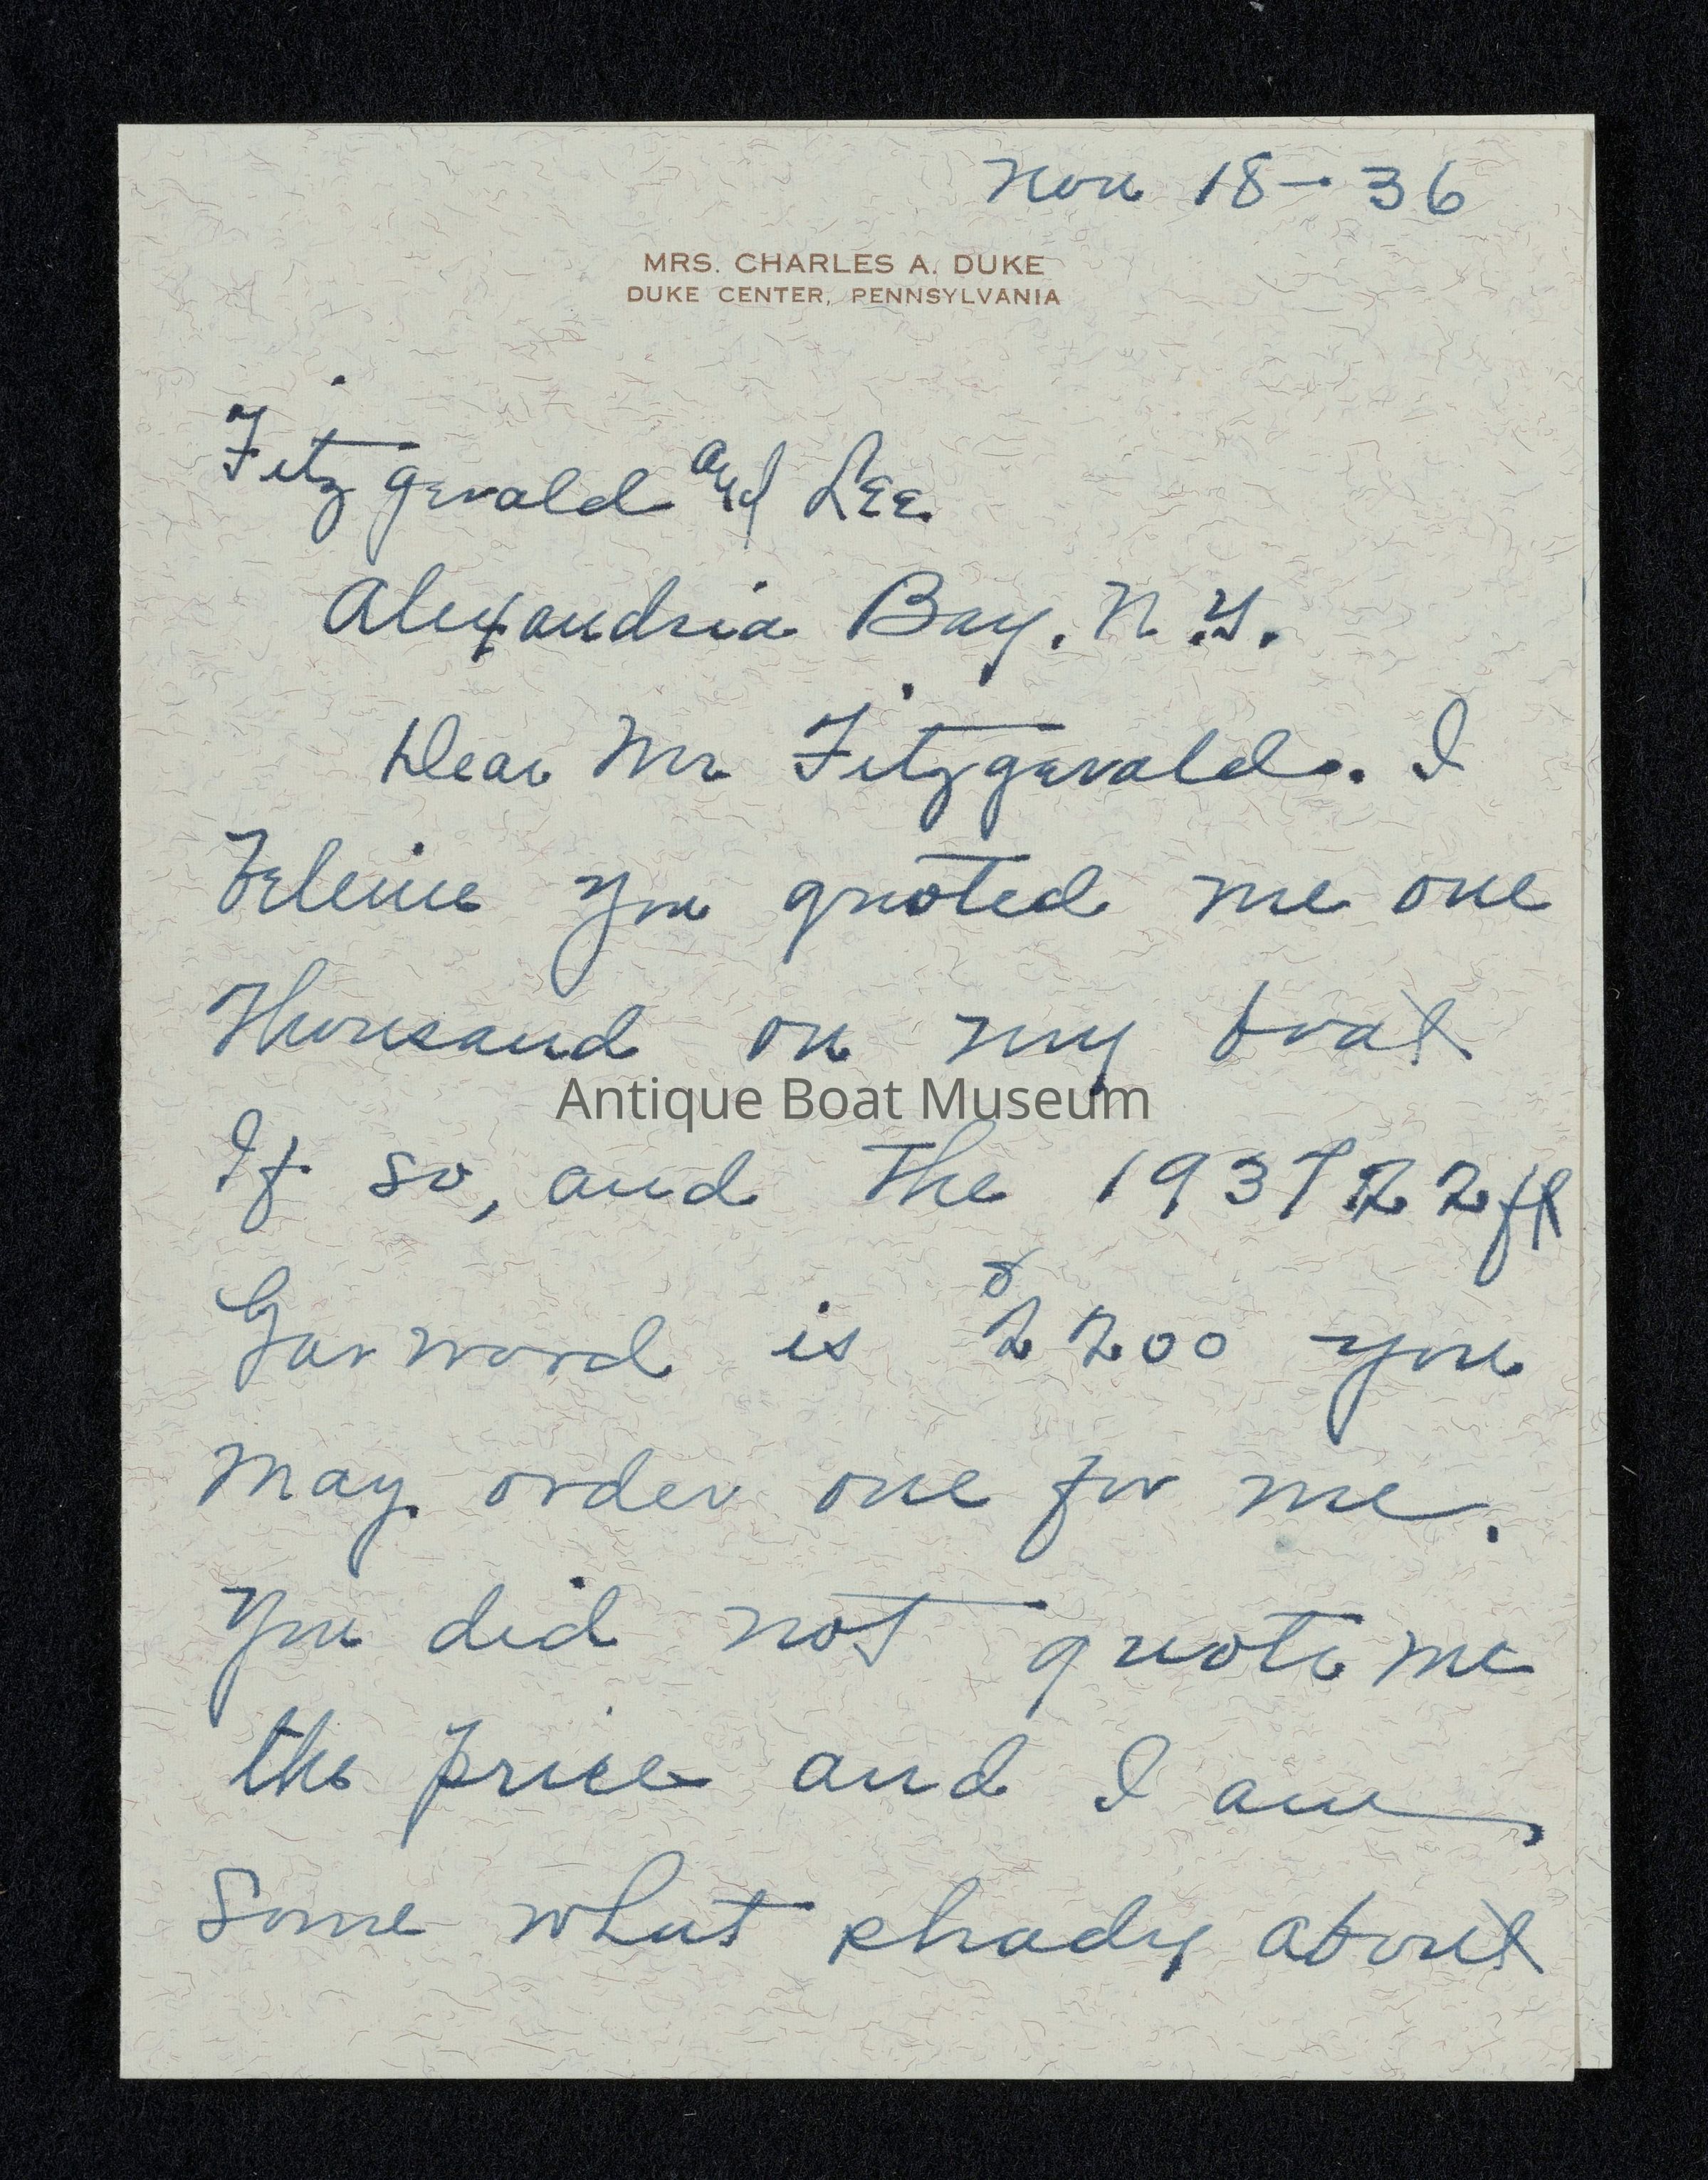 Nov 18-36
MRS. CHARLES A. DUKE
DUKE CENTER, PENNSYLVANIA
Fitzgerald and Lee
Alexandria Bay. N.Y.
Dear Mr Fitzgerald. I
beleive you quoted me one
thousand on my boat
Antique Boat Museum
If so, and the 1937 22 ft
Garwood is $2200 you
may order one for me.
You did not quote me
the price and I am
some what shady about